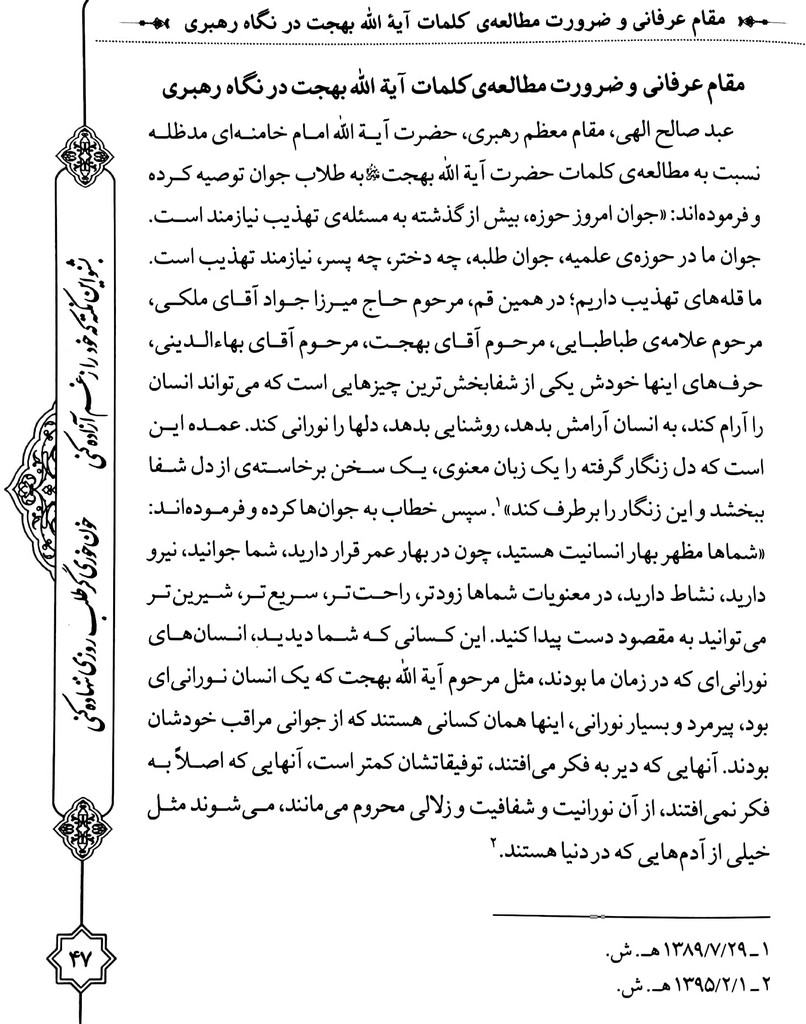 مقام عرفانی و ضرورت مطالعه‌ی کلمات آیة الله بهجت در نگاه رهبری
مقام عرفانی و ضرورت مطالعه‌ی کلمات آیة الله بهجت در نگاه رهبری
عبد صالح الهی، مقام معظم رهبری، حضرت آیـة الله امـام خامنـه‌ای مدظلـه
نسبت به مطالعه‌ی کلمات حضرت آیة الله بهجت به طلاب جوان توصیه کـرده
و فرموده‌اند: «جوان امروز حوزه، بیش از گذشته به مسئله‌ی تهذیب نیازمند اسـت.
جوان ما در حوزه‌ی علمیه، جوان طلبه، چه دختر، چه پسر، نیازمند تهذیب است.
ما قله‌های تهذیب داریم؛ در همین قم، مرحوم حـاج میـرزا جـواد آقـای ملکـی،
مرحوم علامه‌ی طباطبـایی، مرحـوم آقـای بهجـت، مرحـوم آقـای بهاءالـدینی،
حرف‌های اینها خودش یکی از شفابخش‌ترین چیزهایی است که می‌تواند انسان
را آرام کند، به انسان آرامش بدهد، روشنایی بدهد، دلها را نورانی کند. عمـده ایـن
است که دل زنگار گرفته را یک زبان معنوی، یـک سـخن برخاسته‌ی از دل شـفا
ببخشد و این زنگار را برطرف کند»۱. سپس خطاب به جوان‌ها کرده و فرموده‌انـد:
«شماها مظهر بهار انسانیت هستید، چون در بهار عمر قرار دارید، شما جوانید، نیرو
دارید، نشاط دارید، در معنویات شماها زودتر، راحـت‌تـر، سـریع‌تـر، شـیرین‌تـر
می‌توانید به مقصود دست پیدا کنید. این کسـانی کـه شـما دیدیـد، انـسان‌هـای
نورانی‌ای که در زمان ما بودند، مثل مرحوم آیة الله بهجت که یک انسان نـورانی‌ای
بود، پیرمرد و بسیار نورانی، اینها همان کسانی هستند که از جوانی مراقب خودشان
بودند. آنهایی که دیر به فکر می‌افتند، توفیقاتشان کمتر است، آنهایی که اصـلاً بـه
فکر نمی‌افتند، از آن نورانیت و شفافیت و زلالی محروم می‌مانند، مـی‌شـوند مثـل
خیلی از آدم‌هایی که در دنیا هستند.۲
۱ـ ۱۳۸۹/۷/۲۹ هـ. ش.
۲ـ ۱۳۹۵/۲/۱ هـ. ش.
بشنو این نکته که خود را ز غم آزاده کنی
خون خوری گر طلب روزی ننهاده کنی
۴۷